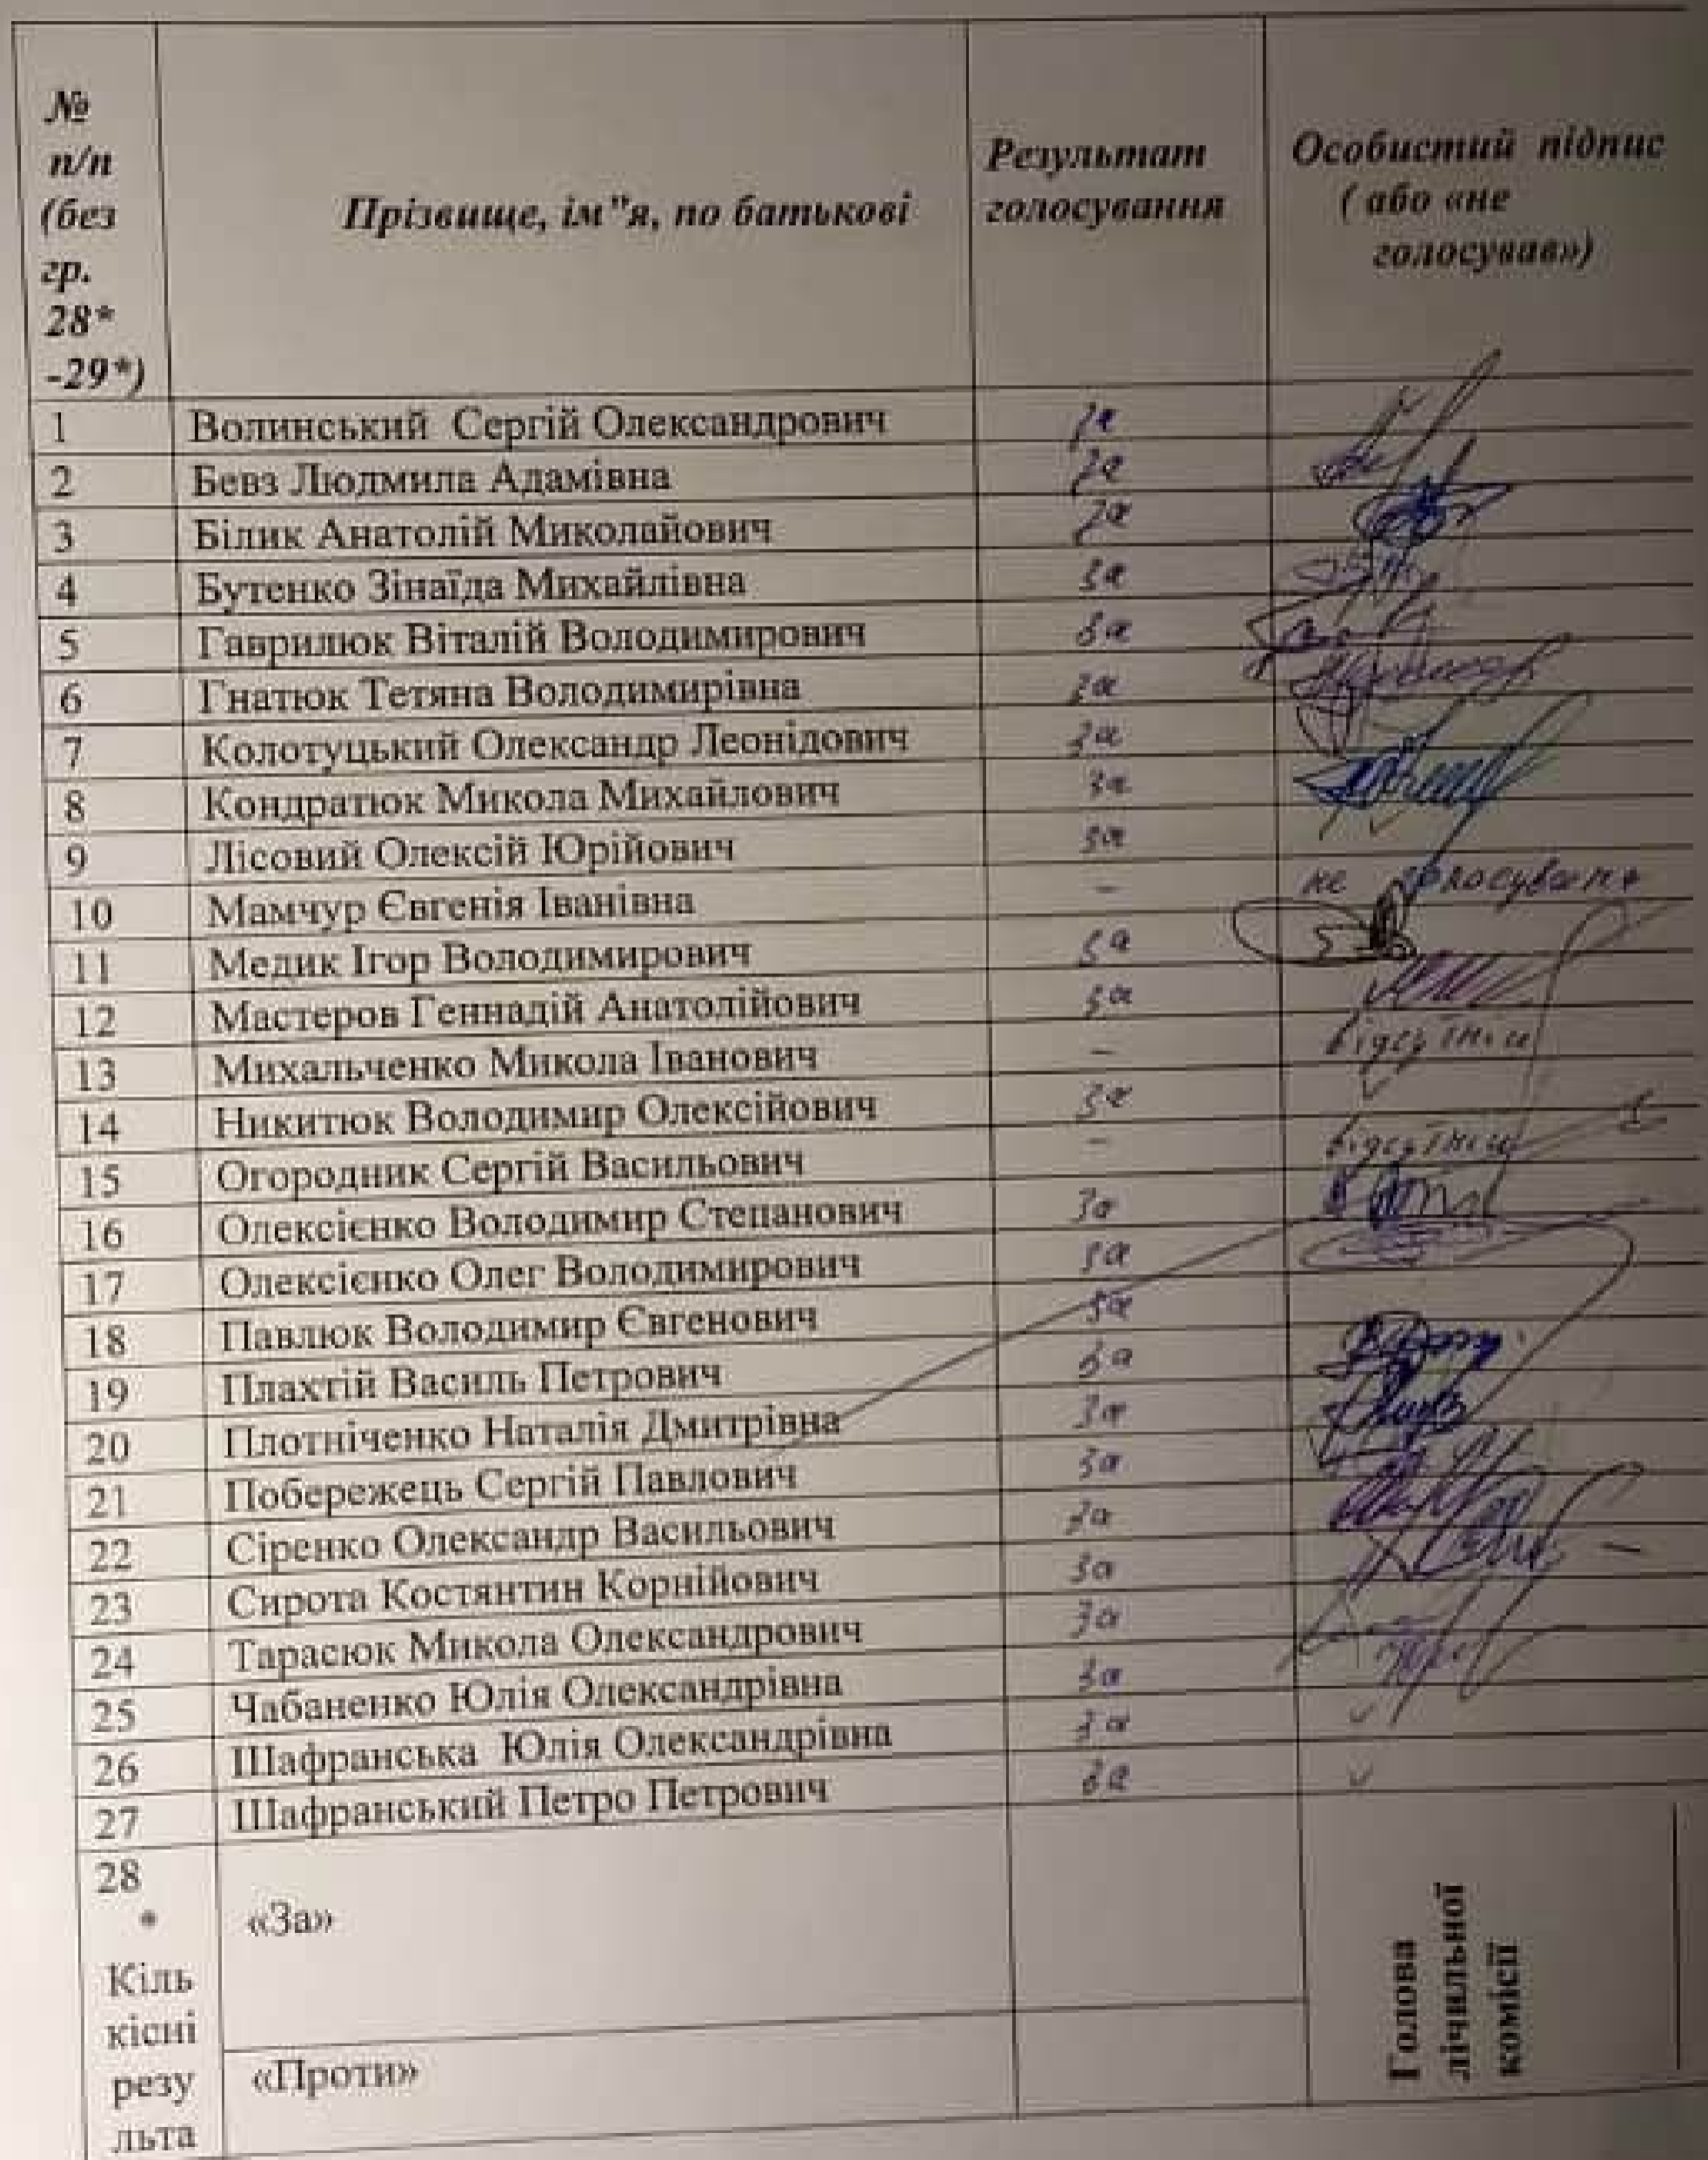 №
п/п
(без
гр.
28*
-29*)
Прізвище, ім"я, по батькові
Результат
голосування
Особистий підпис
( або «не
голосував»)
1 Волинський Сергій Олександрович за
2 Бевз Людмила Адамівна за
3 Білик Анатолій Миколайович за
4 Бутенко Зінаїда Михайлівна за
5 Гаврилюк Віталій Володимирович за
6 Гнатюк Тетяна Володимирівна за
7 Колотуцький Олександр Леонідович за
8 Кондратюк Микола Михайлович за
9 Лісовий Олексій Юрійович за
10 Мамчур Євгенія Іванівна – не
11 Медик Ігор Володимирович за
12 Мастеров Геннадій Анатолійович за
13 Михальченко Микола Іванович – відсутній
14 Никитюк Володимир Олексійович за
15 Огородник Сергій Васильович – відсутній
16 Олексієнко Володимир Степанович за
17 Олексієнко Олег Володимирович за
18 Павлюк Володимир Євгенович за
19 Плахтій Василь Петрович за
20 Плотніченко Наталія Дмитрівна за
21 Побережець Сергій Павлович за
22 Сіренко Олександр Васильович за
23 Сирота Костянтин Корнійович за
24 Тарасюк Микола Олександрович за
25 Чабаненко Юлія Олександрівна за
26 Шафранська Юлія Олександрівна за
27 Шафранський Петро Петрович за
28
*
Кіль
кісні
резу
льта
«За»
«Проти»
Голова
лічильної
комісії